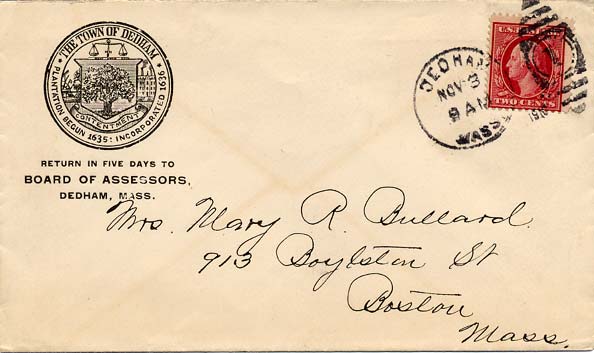 THE TOWN OF DEDHAM
PLANTATION BEGUN 1635: INCORPORATED 1636
CONTENTMENT
RETURN IN FIVE DAYS TO
BOARD OF ASSESSORS,
DEDHAM, MASS.
DEDHAM
NOV 3
9 AM
MASS
TWO CENTS
Mrs. Mary R. Bullard.
913 Boylston St
Boston
Mass.